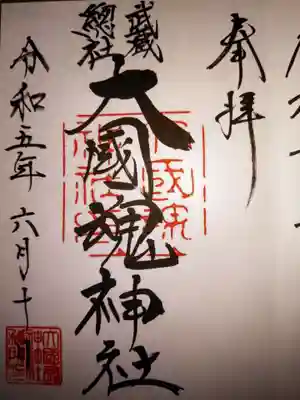 奉拝
武蔵
總社
大國魂神社
令和五年六月十